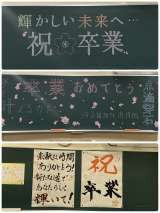 輝かしい未来へ…
祝 卒業
卒業おめでとう
素敵な時間
ありがとう!
新たな道で
あなたらしく
輝いて!
祝
卒業